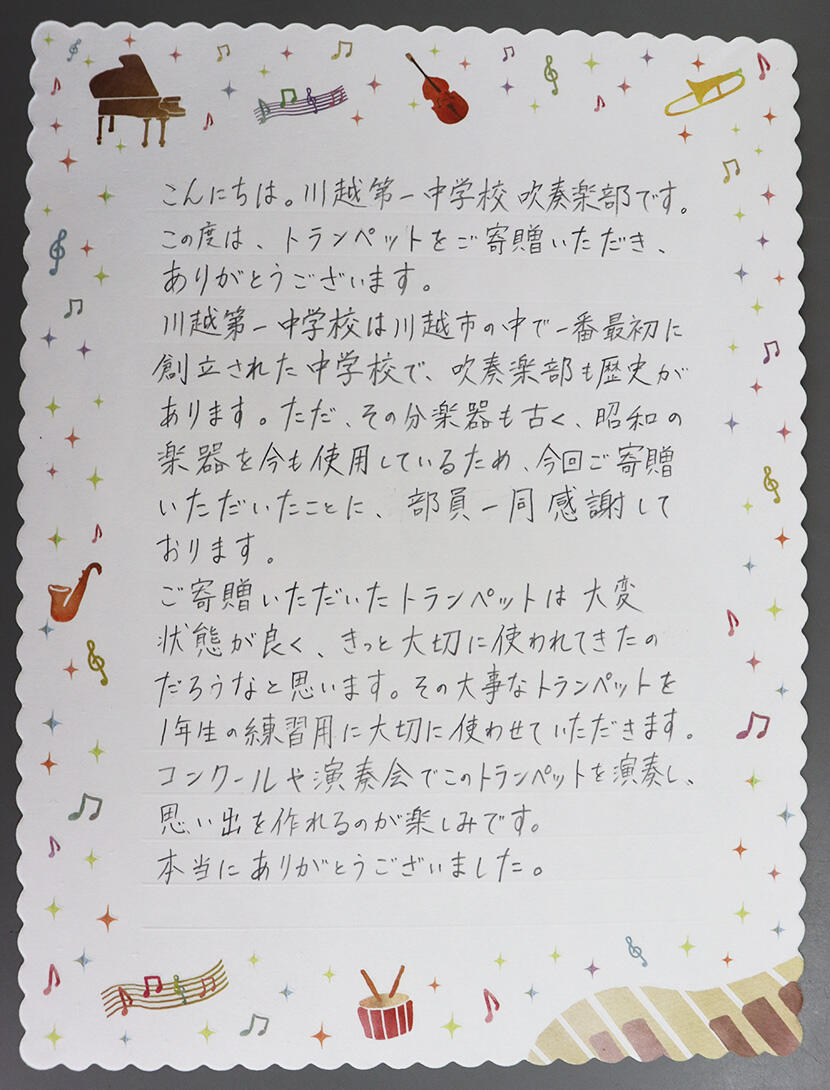 こんにちは。川越第一中学校吹奏楽部です。
この度は、トランペットをご寄贈いただき、
ありがとうございます。
川越第一中学校は川越市の中で一番最初に
創立された中学校で、吹奏楽部も歴史が
あります。ただ、その分楽器も古く、昭和の
楽器を今も使用しているため、今回ご寄贈
いただいたことに、部員一同感謝して
おります。
ご寄贈いただいたトランペットは大変
状態が良く、きっと大切に使われてきたの
だろうなと思います。その大事なトランペットを
1年生の練習用に大切に使わせていただきます。
コンクールや演奏会でこのトランペットを演奏し、
思い出を作れるのが楽しみです。
本当にありがとうございました。